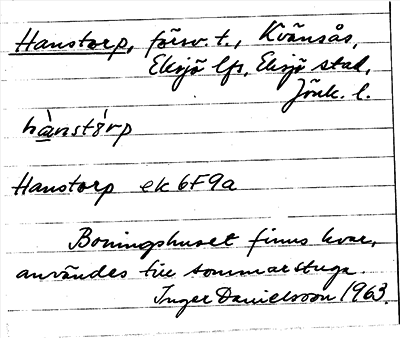 Hanstorp, försv. t., Kvänsås,
Eksjö lfs, Eksjö stad,
Jönk. l.
hànstórp
Hanstorp ek 6F9a
Boningshuset finns kvar,
användes till sommarstuga.
Inger Danielsson 1963.